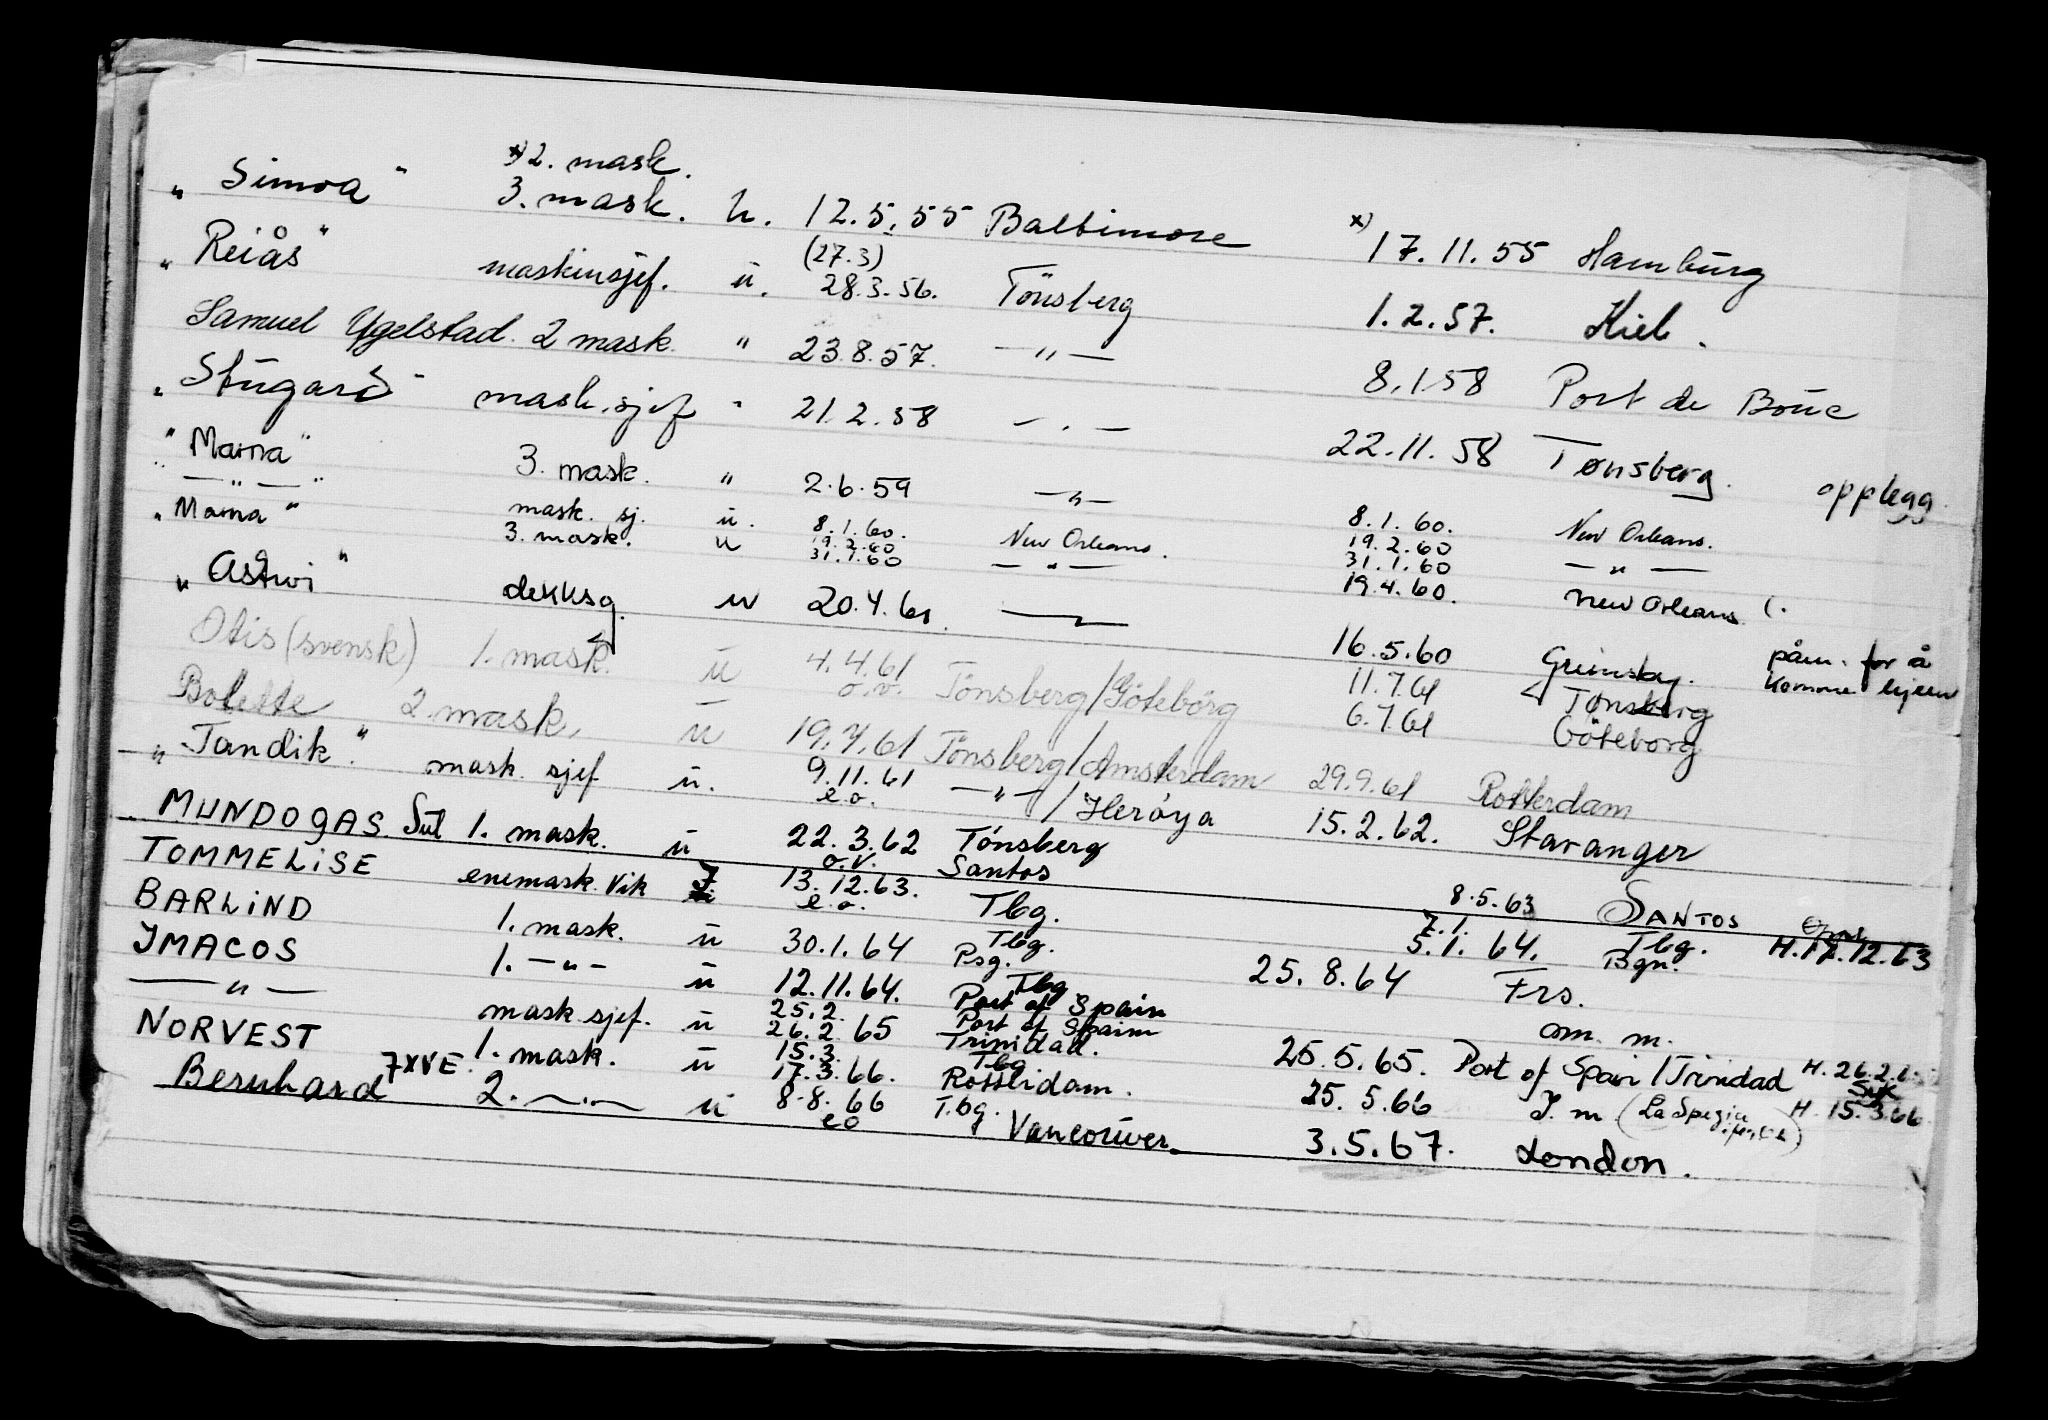 x) 2. mask.
„ Simoa " 3. mask. u. 12.5.55 Baltimore x) 17.11.55 Hamburg
(27.3)
„ Reiås " maskinsjef. u. 28.3.56. Tönsberg 1.2.57. Kiel.
Samuel Ugelstad. 2 mask. " 23.8.57. — " — 8.1.58 Port de Bouc
„ Stugard " mask.sjef " 21.2.58 — " — 22.11.58 Tønsberg. opplegg.
" Marna " 3. mask. " 2.6.59 — " — 8.1.60. New Orleans.
" — " — " mask. sj. u. 8.1.60. New Orleans. 19.2.60 — " —
19.2.60 31.1.60
„ Marna " 3. mask. u 31.1.60 — " — 19.4.60. New Orleans (.
„ Astwi " dekksg. u 20.4.60. — 16.5.60 Grimsby. påm. for å
komme hjem
Otis (svensk) 1. mask. u 4.4.61 Tönsberg/Göteborg 11.7.61 Tønsberg
o.v. 6.7.61 Göteborg
Bolette 2. mask. u 19.7.61 Tönsberg/Amsterdam 29.9.61 Rotterdam
„ Tandik. " mask. sjef u. 9.11.61 — " — / Herøya 15.2.62. Stavanger
e.o.
MUNDOGAS Sul 1. mask. u 22.3.62 Tönsberg 8.5.63 SANTOS
o.v. Santos
TOMMELiSE enemask. Vik 13.12.63. Tbg. 7.1. Tbg. H.17.12.63
e.o. 5.1.64. Bgn.
BARLiND 1. mask. u 30.1.64 Tbg. 25.8.64 Frs.
Psg.
JMACOS 1. — " — u 12.11.64. Tbg om. m.
Port of Spain
— " — mask sjef. u 25.2. Port of Spain 25.5.65. Port of Spain/Trinidad H. 26.2.65
26.2.65 Trinidad.
NORVEST 1. mask. u 15.3. Tbg 25.5.66 J. m (La Spezia) H. 15.3.66
17.3.66. Rotterdam.
Bernhard 7XVE. 2. — " — u 8.8.66 Tbg. 3.5.67. London.
eo Vancouver.